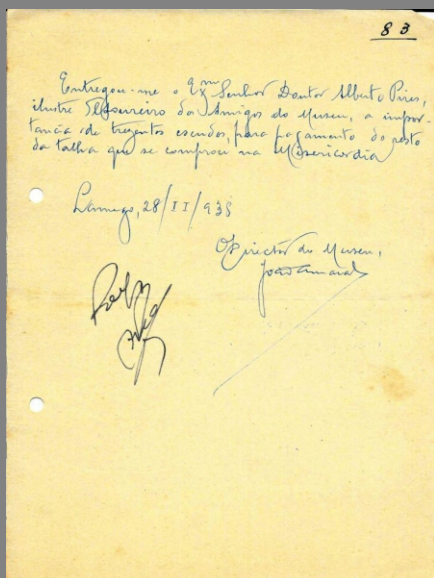 83
Entregou-me o Exmº Senhor Doutor Alberto Pires,
ilustre Tesoureiro dos Amigos do Museu, a impor-
tancia de trezentos escudos, para pagamento do resto
da talha que se comprou na Misericordia
Lamego, 28/II/935
O Director do Museu,
João Amaral